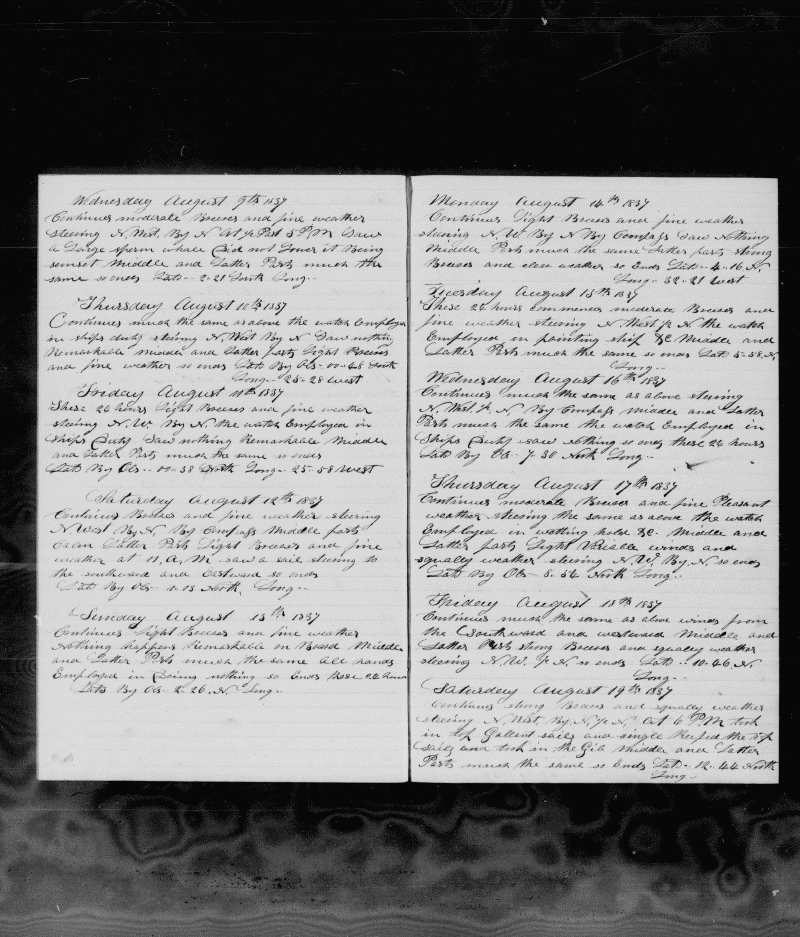 Wednesday August 9th 1837
Continues moderate Breeses and fine weather
steering N. West. By N At ½ Past 5 P,M Saw
a Large sperm whale Did not Lower it Being
sunset Middle and Latter Parts much the
same so ends Lat- 2-21 South Long..
Thursday August 10th 1837
Continues much the same as above the watch Employed
in ships duty steering N. West By N Saw nothing
Remarkable middle and Latter parts Light Breeses
and fine weather so ends Lat By Obs- 00-48 South
Long- 25-28 West
Friday August 11th 1837
These 24 hours Light Breeses and fine weather
steering N. W. By N. the watch Employed in
Ships Duty Saw nothing Remarkable Middle
and Latter Parts much the same so ends
Lat By Obs.. 00-38 North Long- 25-58 West
Saturday August 12th 1837
Continues Breeses and fine weather steering
N. West By N. By Compass Middle parts
Calm Latter Parts Light Breeses and fine
weather at 11, A, M saw a sail steering to
the southward and Eastward so ends
Lat By Obs- 1-13 North, Long-
Sunday August 13th 1837
Continues Light Breeses and fine weather
nothing happens Remarkable on Board Middle
and Latter Parts much the same All hands
Employed in Doing nothing so Ends these 24 hours
Lat By Obs 2-26. N- Long-
Monday August 14th 1837
Continues Light Breeses and fine weather
steering N. W By N By Compass Saw Nothing
Middle Parts much the same Latter parts strong
Breeses and clear weather so Ends Lat- 4-16 N
Long- 32-21 West
Tuesday August 15th 1837
These 24 hours Commences moderate Breeses and
fine weather steering N. West ½ N the watch
Employed in painting ship &C Middle and
Latter Parts much the same so ends Lat 5-58, N,
Long-
Wednesday August 16th 1837
Continues much the same as above steering
N. West. ½. N, By Compass middle and Latter
Parts much the same the watch Employed in
Ships Duty saw nothing so ends these 24 hours
Lat By Ob- 7-30 North Long-
Thursday August 17th 1837
Continues moderate Breeses and fine Pleasant
weather steering the same as above the watch
Employed in wetting hold &C- Middle and
Latter parts Light Variable winds and
squally weather steering N. W. By, N, so ends
Lat By Ob- 8-54 North Long-
Friday August 18th 1837
Continues much the same as above winds from
the Southward and westward Middle and
Latter Parts strong Breeses and squaly weather
steering N. W. ½ N so ends Lat- 10-46, N,
Long-
Saturday August 19th 1837
Continues strong Breeses and squally weather
steering N. West. By. N, ½ N, At 6 P,M took
in top Gallent sails and single Reefed the top
sails and took in the Gib Middle and Latter
Parts much the same so Ends Lat- 12-44 North
Long-